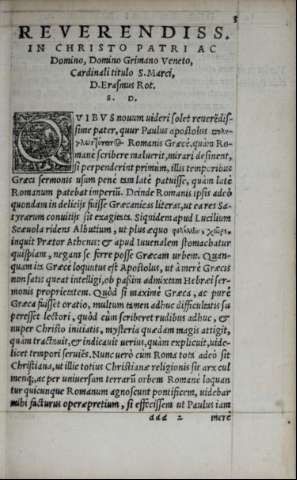 3
REVERENDISS.
IN CHRISTO PATRI AC
Domino, Domino Grimano Veneto,
Cardinali titulo S. Marci,
D. Erasmus Rot.
S. D.
QVIBVS nouum uideri solet reuerēdis-
sime pater, cur Paulus apostolus
Romanis Græcè, quàm Ro-
manè scribere maluerit, mirari desinent,
si perpenderint primùm, illis temporibus
Græci sermonis usum penè tam latè patuisse, quàm latè
Romanum patebat imperiū. Deinde Romanis ipsis adeò
quondam in deliciis fuisse Græcanicas literas, ut ea res Sa-
tyrarum conuitiis sit exagitata. Siquidem apud Lucilium
Scæuola ridens Albutium, ut plus æquo
inquit Prætor Athenis: & apud Iuuenalem stomachatur
quispiam, negans se ferre posse Græcam urbem. Quan-
quam ita Græcè loquutus est Apostolus, ut à merè Græcis
non satis queat intelligi, ob passim admixtam Hebræi ser-
monis proprietatem. Quòd si maximè Græca, ac purè
Græca fuisset oratio, multum tamen adhuc difficultatis su
peresset lectori, quòd cùm scriberet rudibus adhuc, &
nuper Christo initiatis, mysteria quædam magis attigit,
quàm tractauit, & indicauit uerius, quàm explicuit, uide-
licet tempori seruiēs. Nunc uerò cùm Roma tota adeò sit
Christiana, ut illic totius Christianæ religionis sit arx cul
menq́;, ac per uniuersam terrarū orbem Romanè loquan
tur quicunque Romanum agnoscunt pontificem, uidebar
mihi facturus operæpretium, si effecissem ut Paulus iam
ddd 2 mere